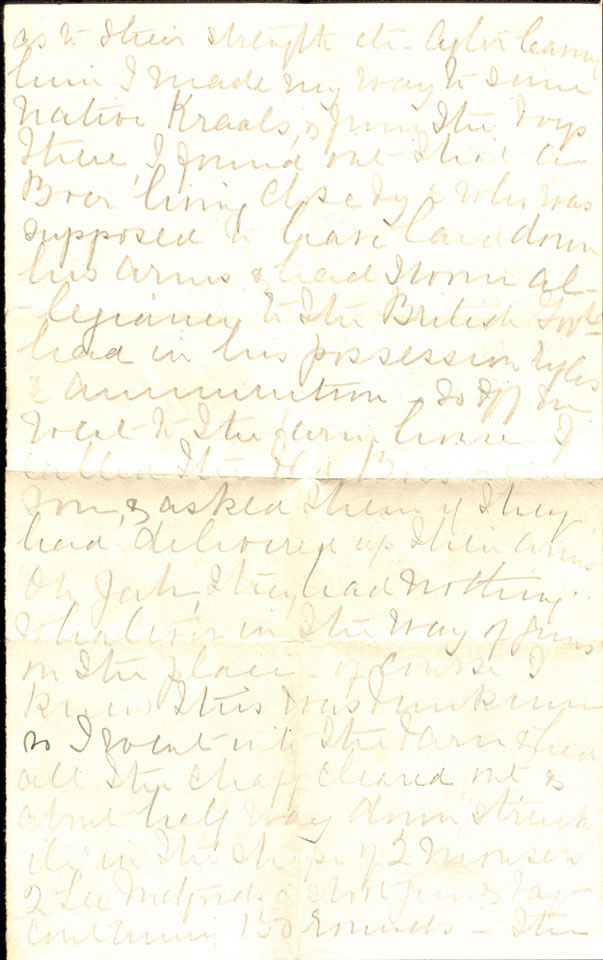 as to their strength etc. After leaving
him I made my way to some
Native Kraals, & from the boys
there, I found out that a
Boer living close by & who was
supposed to have laid down
his arms & had sworn al-
-legiance to the British Govt
had in his possession rifles
& ammunition - So off we
went to the farm house I
called the Old Boer and
son, & asked them if they
had delivered up their arms
Oh Jah, they had nothing
whatever in the way of arms
on the place - of course I
knew this was
so I went into the barn & had
all the chaff cleared out &
about half way down "struck
ile" in the shape of 2 Mausers
2 Lee Metfords a shot gun & bag
containing 150 rounds - The